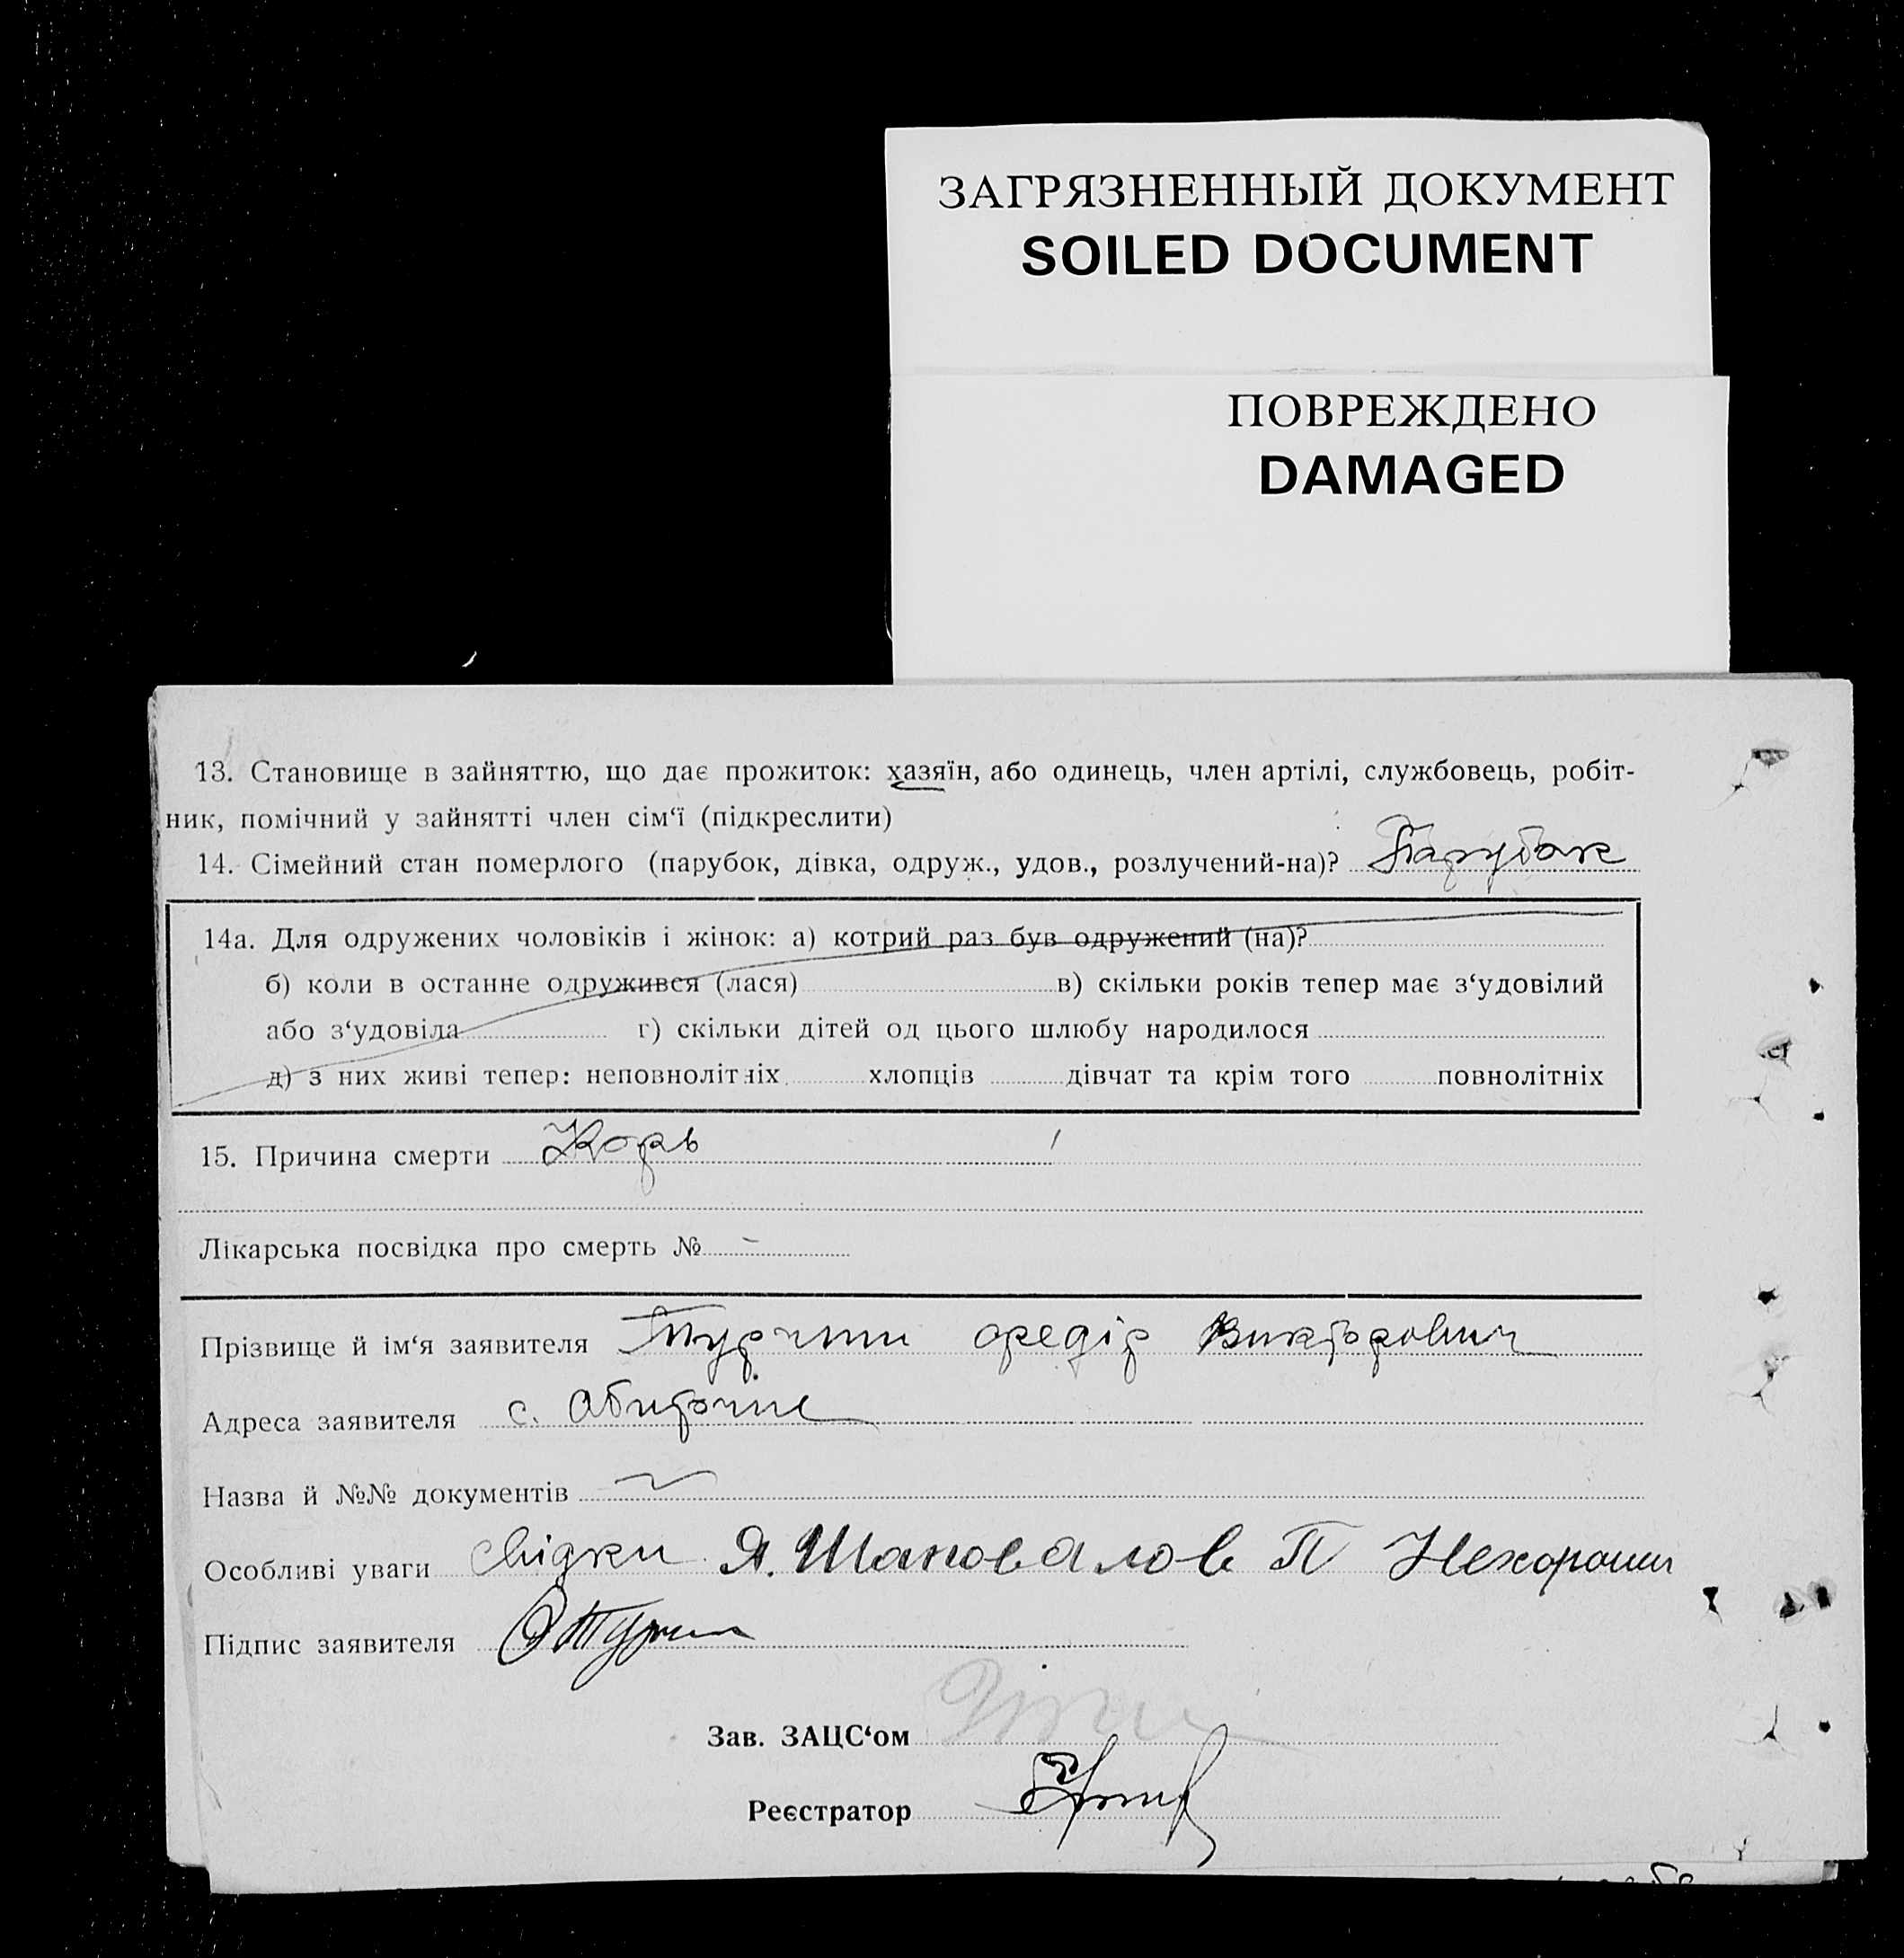 ЗАГРЯЗНЕННЫЙ ДОКУМЕНТ
SOILED DOCUMENT
ПОВРЕЖДЕНО
DAMAGED
13. Становище в зайняттю, що дає прожиток: хазяїн, або одинець, член артілі, службовець, робіт-
ник, помічний у зайнятті член сім‘ї (підкреслити)
14. Сімейний стан померлого (парубок, дівка, одруж., удов., розлучений-на)? Парубок
14а. Для одружених чоловіків і жінок: а) котрий раз був одружений (на)?
б) коли в останне одружився (лася) в) скільки років тепер має з‘удовілий
або з‘удовіла г) скільки дітей од цього шлюбу народилося
д) з них живі тепер: неповнолітніх хлопців дівчат та крім того повнолітніх
15. Причина смерти Корь
Лікарська посвідка про смерть № -
Прізвище й ім‘я заявителя Турчин Федір Викторович
Адреса заявителя с. Обиточне
Назва й №№ документів
Особливі уваги свідки Я. Шаповалов П Нехороших
Підпис заявителя
Зав. ЗАЦС‘ом
Реєстратор